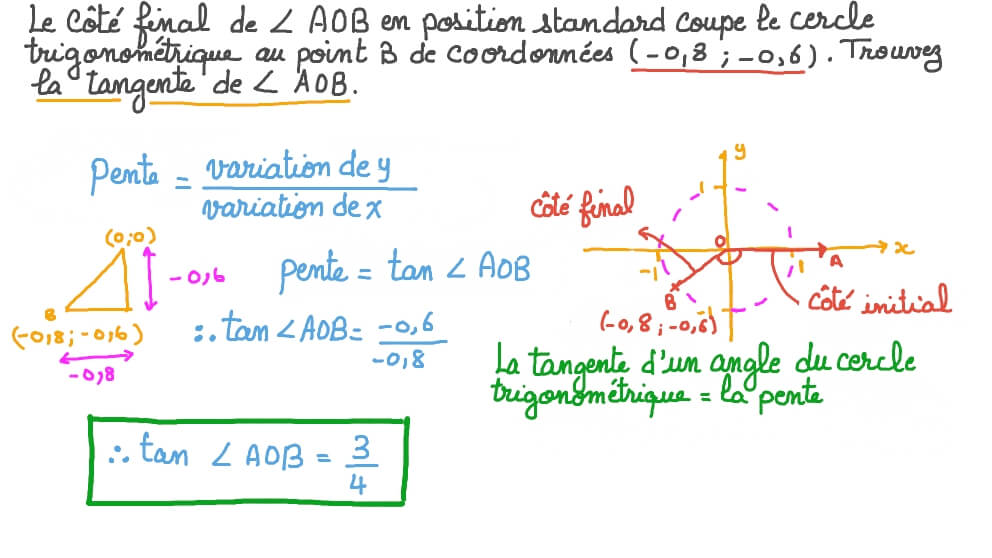 Le côté final de ∠ AOB en position standard coupe le cercle
trigonométrique au point B de coordonnées (-0,8 ; -0,6). Trouvez
la tangente de ∠ AOB.
Pente = variation de y / variation de x
(0;0)
-0,6
B
(-0,8 ; -0,6)
-0,8
pente = tan ∠ AOB
∴ tan ∠ AOB = -0,6 / -0,8
∴ tan ∠ AOB = 3/4
y
1
côté final
O
x
-1
1
A
B
-1
côté initial
(-0,8 ; -0,6)
La tangente d'un angle du cercle
trigonométrique = la pente